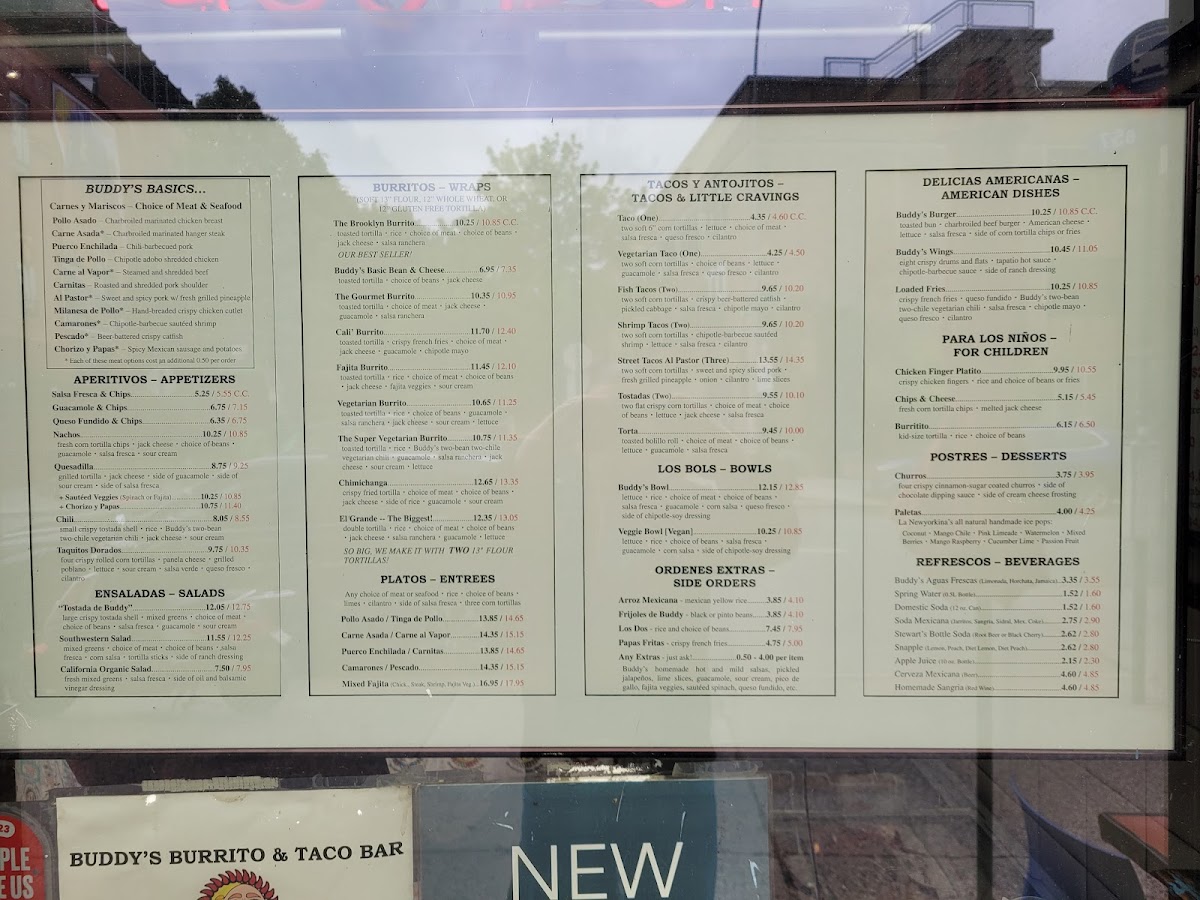 BUDDY'S BASICS...
Carnes y Mariscos – Choice of Meat & Seafood
Pollo Asado – Charbroiled marinated chicken breast
Carne Asada* – Charbroiled marinated hanger steak
Puerco Enchilada – Chili-barbecued pork
Tinga de Pollo – Chipotle adobo shredded chicken
Carne al Vapor* – Steamed and shredded beef
Carnitas – Roasted and shredded pork shoulder
Al Pastor* – Sweet and spicy pork w/ fresh grilled pineapple
Milanesa de Pollo* – Hand-breaded crispy chicken cutlet
Camarones* – Chipotle-barbecue sautéed shrimp
Pescado* – Beer-battered crispy catfish
Chorizo y Papas* – Spicy Mexican sausage and potatoes
* Each of these meat options cost an additional 0.50 per order
APERITIVOS – APPETIZERS
Salsa Fresca & Chips 5.25 / 5.55 C.C.
Guacamole & Chips 6.75 / 7.15
Queso Fundido & Chips 6.35 / 6.75
Nachos 10.25 / 10.85
fresh corn tortilla chips • jack cheese • choice of beans •
guacamole • salsa fresca • sour cream
Quesadilla 8.75 / 9.25
grilled tortilla • jack cheese • side of guacamole • side of
sour cream • side of salsa fresca
+ Sautéed Veggies (Spinach or Fajita) 10.25 / 10.85
+ Chorizo y Papas 10.75 / 11.40
Chili 8.05 / 8.55
small crispy tostada shell • rice • Buddy's two-bean
two-chile vegetarian chili • jack cheese • sour cream
Taquitos Dorados 9.75 / 10.35
four crispy rolled corn tortillas • panela cheese • grilled
poblano • lettuce • sour cream • salsa verde • queso fresco •
cilantro
ENSALADAS – SALADS
"Tostada de Buddy" 12.05 / 12.75
large crispy tostada shell • mixed greens • choice of meat •
choice of beans • salsa fresca • guacamole • sour cream
Southwestern Salad 11.55 / 12.25
mixed greens • choice of meat • choice of beans • salsa
fresca • corn salsa • tortilla sticks • side of ranch dressing
California Organic Salad 7.50 / 7.95
fresh mixed greens • salsa fresca • side of oil and balsamic
vinegar dressing
BURRITOS – WRAPS
(SOFT 13" FLOUR, 12" WHOLE WHEAT, OR
12" GLUTEN FREE TORTILLA)
The Brooklyn Burrito 10.25 / 10.85 C.C.
toasted tortilla • rice • choice of meat • choice of beans •
jack cheese • salsa ranchera
OUR BEST SELLER!
Buddy's Basic Bean & Cheese 6.95 / 7.35
toasted tortilla • choice of beans • jack cheese
The Gourmet Burrito 10.35 / 10.95
toasted tortilla • choice of meat • jack cheese •
guacamole • salsa ranchera
Cali' Burrito 11.70 / 12.40
toasted tortilla • crispy french fries • choice of meat •
jack cheese • guacamole • chipotle mayo
Fajita Burrito 11.45 / 12.10
toasted tortilla • rice • choice of meat • choice of beans
• jack cheese • fajita veggies • sour cream
Vegetarian Burrito 10.65 / 11.25
toasted tortilla • rice • choice of beans • guacamole •
salsa ranchera • jack cheese • sour cream • lettuce
The Super Vegetarian Burrito 10.75 / 11.35
toasted tortilla • rice • Buddy's two-bean two-chile
vegetarian chili • guacamole • salsa ranchera • jack
cheese • sour cream • lettuce
Chimichanga 12.65 / 13.35
crispy fried tortilla • choice of meat • choice of beans •
jack cheese • side of rice • guacamole • sour cream
El Grande -- The Biggest! 12.35 / 13.05
double tortilla • rice • choice of meat • choice of beans •
jack cheese • salsa ranchera • guacamole • lettuce
SO BIG, WE MAKE IT WITH TWO 13" FLOUR
TORTILLAS!
PLATOS – ENTREES
Any choice of meat or seafood • rice • choice of beans •
limes • cilantro • side of salsa fresca • three corn tortillas
Pollo Asado / Tinga de Pollo 13.85 / 14.65
Carne Asada / Carne al Vapor 14.35 / 15.15
Puerco Enchilada / Carnitas 13.85 / 14.65
Camarones / Pescado 14.35 / 15.15
Mixed Fajita (Chick., Steak, Shrimp, Fajita Veg.) 16.95 / 17.95
TACOS Y ANTOJITOS –
TACOS & LITTLE CRAVINGS
Taco (One) 4.35 / 4.60 C.C.
two soft 6" corn tortillas • lettuce • choice of meat •
salsa fresca • queso fresco • cilantro
Vegetarian Taco (One) 4.25 / 4.50
two soft corn tortillas • choice of beans • lettuce •
guacamole • salsa fresca • queso fresco • cilantro
Fish Tacos (Two) 9.65 / 10.20
two soft corn tortillas • crispy beer-battered catfish •
pickled cabbage • salsa fresca • chipotle mayo • cilantro
Shrimp Tacos (Two) 9.65 / 10.20
two soft corn tortillas • chipotle-barbecue sautéed
shrimp • lettuce • salsa fresca • cilantro
Street Tacos Al Pastor (Three) 13.55 / 14.35
two soft corn tortillas • sweet and spicy sliced pork •
fresh grilled pineapple • onion • cilantro • lime slices
Tostadas (Two) 9.55 / 10.10
two flat crispy corn tortillas • choice of meat • choice
of beans • lettuce • jack cheese • salsa fresca
Torta 9.45 / 10.00
toasted bolillo roll • choice of meat • choice of beans •
lettuce • guacamole • salsa fresca
LOS BOLS – BOWLS
Buddy's Bowl 12.15 / 12.85
lettuce • rice • choice of meat • choice of beans •
salsa fresca • guacamole • corn salsa • queso fresco •
side of chipotle-soy dressing
Veggie Bowl [Vegan] 10.25 / 10.85
lettuce • rice • choice of beans • salsa fresca •
guacamole • corn salsa • side of chipotle-soy dressing
ORDENES EXTRAS –
SIDE ORDERS
Arroz Mexicana - mexican yellow rice 3.85 / 4.10
Frijoles de Buddy - black or pinto beans 3.85 / 4.10
Los Dos - rice and choice of beans 7.45 / 7.95
Papas Fritas - crispy french fries 4.75 / 5.00
Any Extras - just ask! 0.50 - 4.00 per item
Buddy's homemade hot and mild salsas, pickled
jalapeños, lime slices, guacamole, sour cream, pico de
gallo, fajita veggies, sautéed spinach, queso fundido, etc.
DELICIAS AMERICANAS –
AMERICAN DISHES
Buddy's Burger 10.25 / 10.85 C.C.
toasted bun • charbroiled beef burger • American cheese •
lettuce • salsa fresca • side of corn tortilla chips or fries
Buddy's Wings 10.45 / 11.05
eight crispy drums and flats • tapatio hot sauce •
chipotle-barbecue sauce • side of ranch dressing
Loaded Fries 10.25 / 10.85
crispy french fries • queso fundido • Buddy's two-bean
two-chile vegetarian chili • salsa fresca • chipotle mayo •
queso fresco • cilantro
PARA LOS NIÑOS –
FOR CHILDREN
Chicken Finger Platito 9.95 / 10.55
crispy chicken fingers • rice and choice of beans or fries
Chips & Cheese 5.15 / 5.45
fresh corn tortilla chips • melted jack cheese
Burritito 6.15 / 6.50
kid-size tortilla • rice • choice of beans
POSTRES – DESSERTS
Churros 3.75 / 3.95
four crispy cinnamon-sugar coated churros • side of
chocolate dipping sauce • side of cream cheese frosting
Paletas 4.00 / 4.25
La Newyorkina's all natural handmade ice pops:
Coconut • Mango Chile • Pink Limeade • Watermelon • Mixed
Berries • Mango Raspberry • Cucumber Lime • Passion Fruit
REFRESCOS – BEVERAGES
Buddy's Aguas Frescas (Limonada, Horchata, Jamaica) 3.35 / 3.55
Spring Water (0.5L Bottle) 1.52 / 1.60
Domestic Soda (12 oz. Can) 1.52 / 1.60
Soda Mexicana (Jarritos, Sangria, Sidral, Mex. Coke) 2.75 / 2.90
Stewart's Bottle Soda (Root Beer or Black Cherry) 2.62 / 2.80
Snapple (Lemon, Peach, Diet Lemon, Diet Peach) 2.62 / 2.80
Apple Juice (10 oz. Bottle) 2.15 / 2.30
Cerveza Mexicana (Beer) 4.60 / 4.85
Homemade Sangria (Red Wine) 4.60 / 4.85
BUDDY'S BURRITO & TACO BAR
NEW
23
PLE
E US